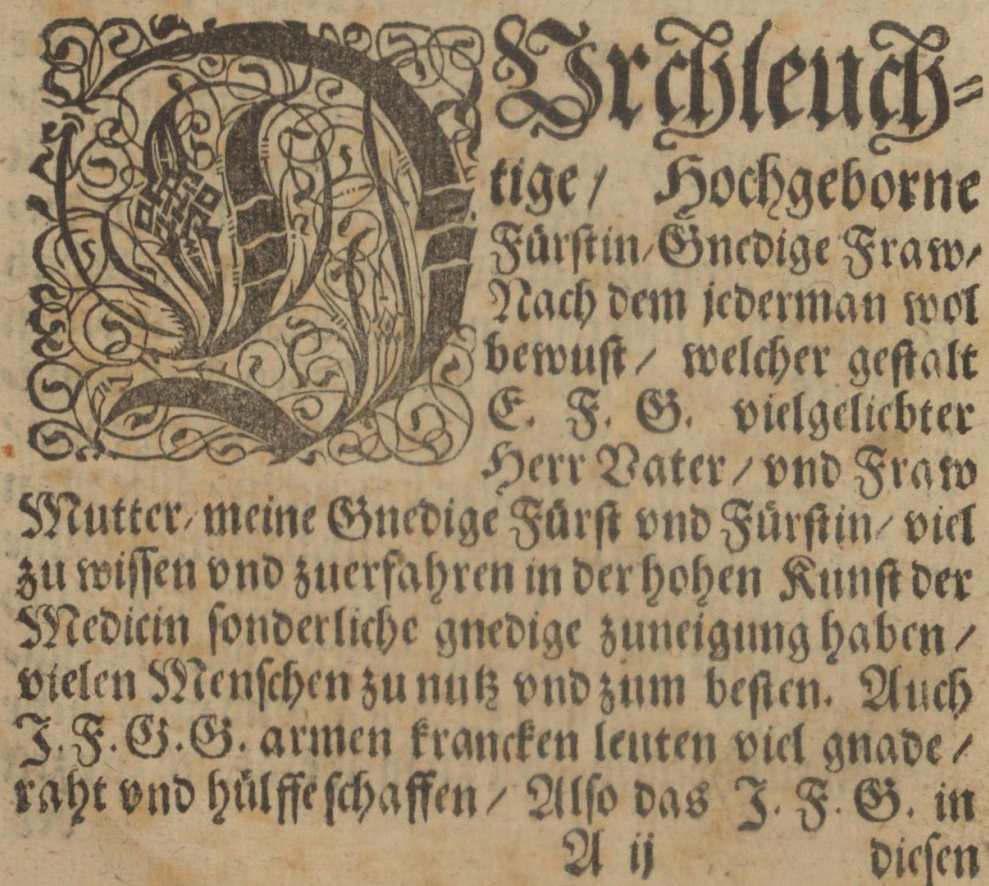 DUrchleuch-
tige / Hochgeborne
Fürstin / Gnedige Fraw /
Nach dem jederman wol
bewust / welcher gestalt
E. F. G. vielgeliebter
Herr Vater / vnd Fraw
Mutter / meine Gnedige Fürst vnd Fürstin / viel
zu wissen vnd zuerfahren in der hohen Kunst der
Medicin sonderliche gnedige zuneigung haben /
vielen Menschen zu nutz vnd zum besten. Auch
J. F. G. G. armen krancken leuten viel gnade /
raht vnd hülffe schaffen / Also das J. F. G. in
A ij diesen